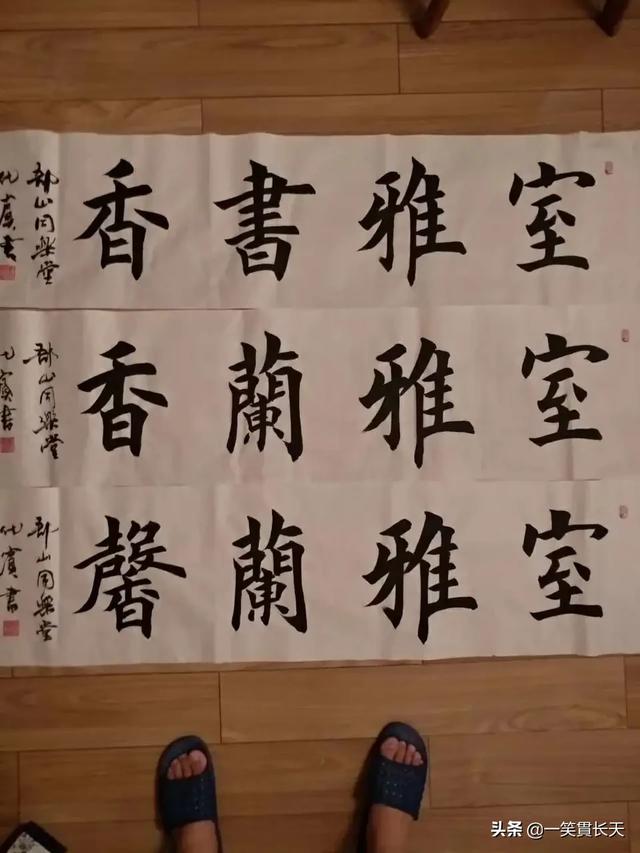 室雅書香
山同樂堂
賓書
室雅蘭香
山同樂堂
賓書
室雅蘭馨
山同樂堂
賓書
头条 @一笑貫长天